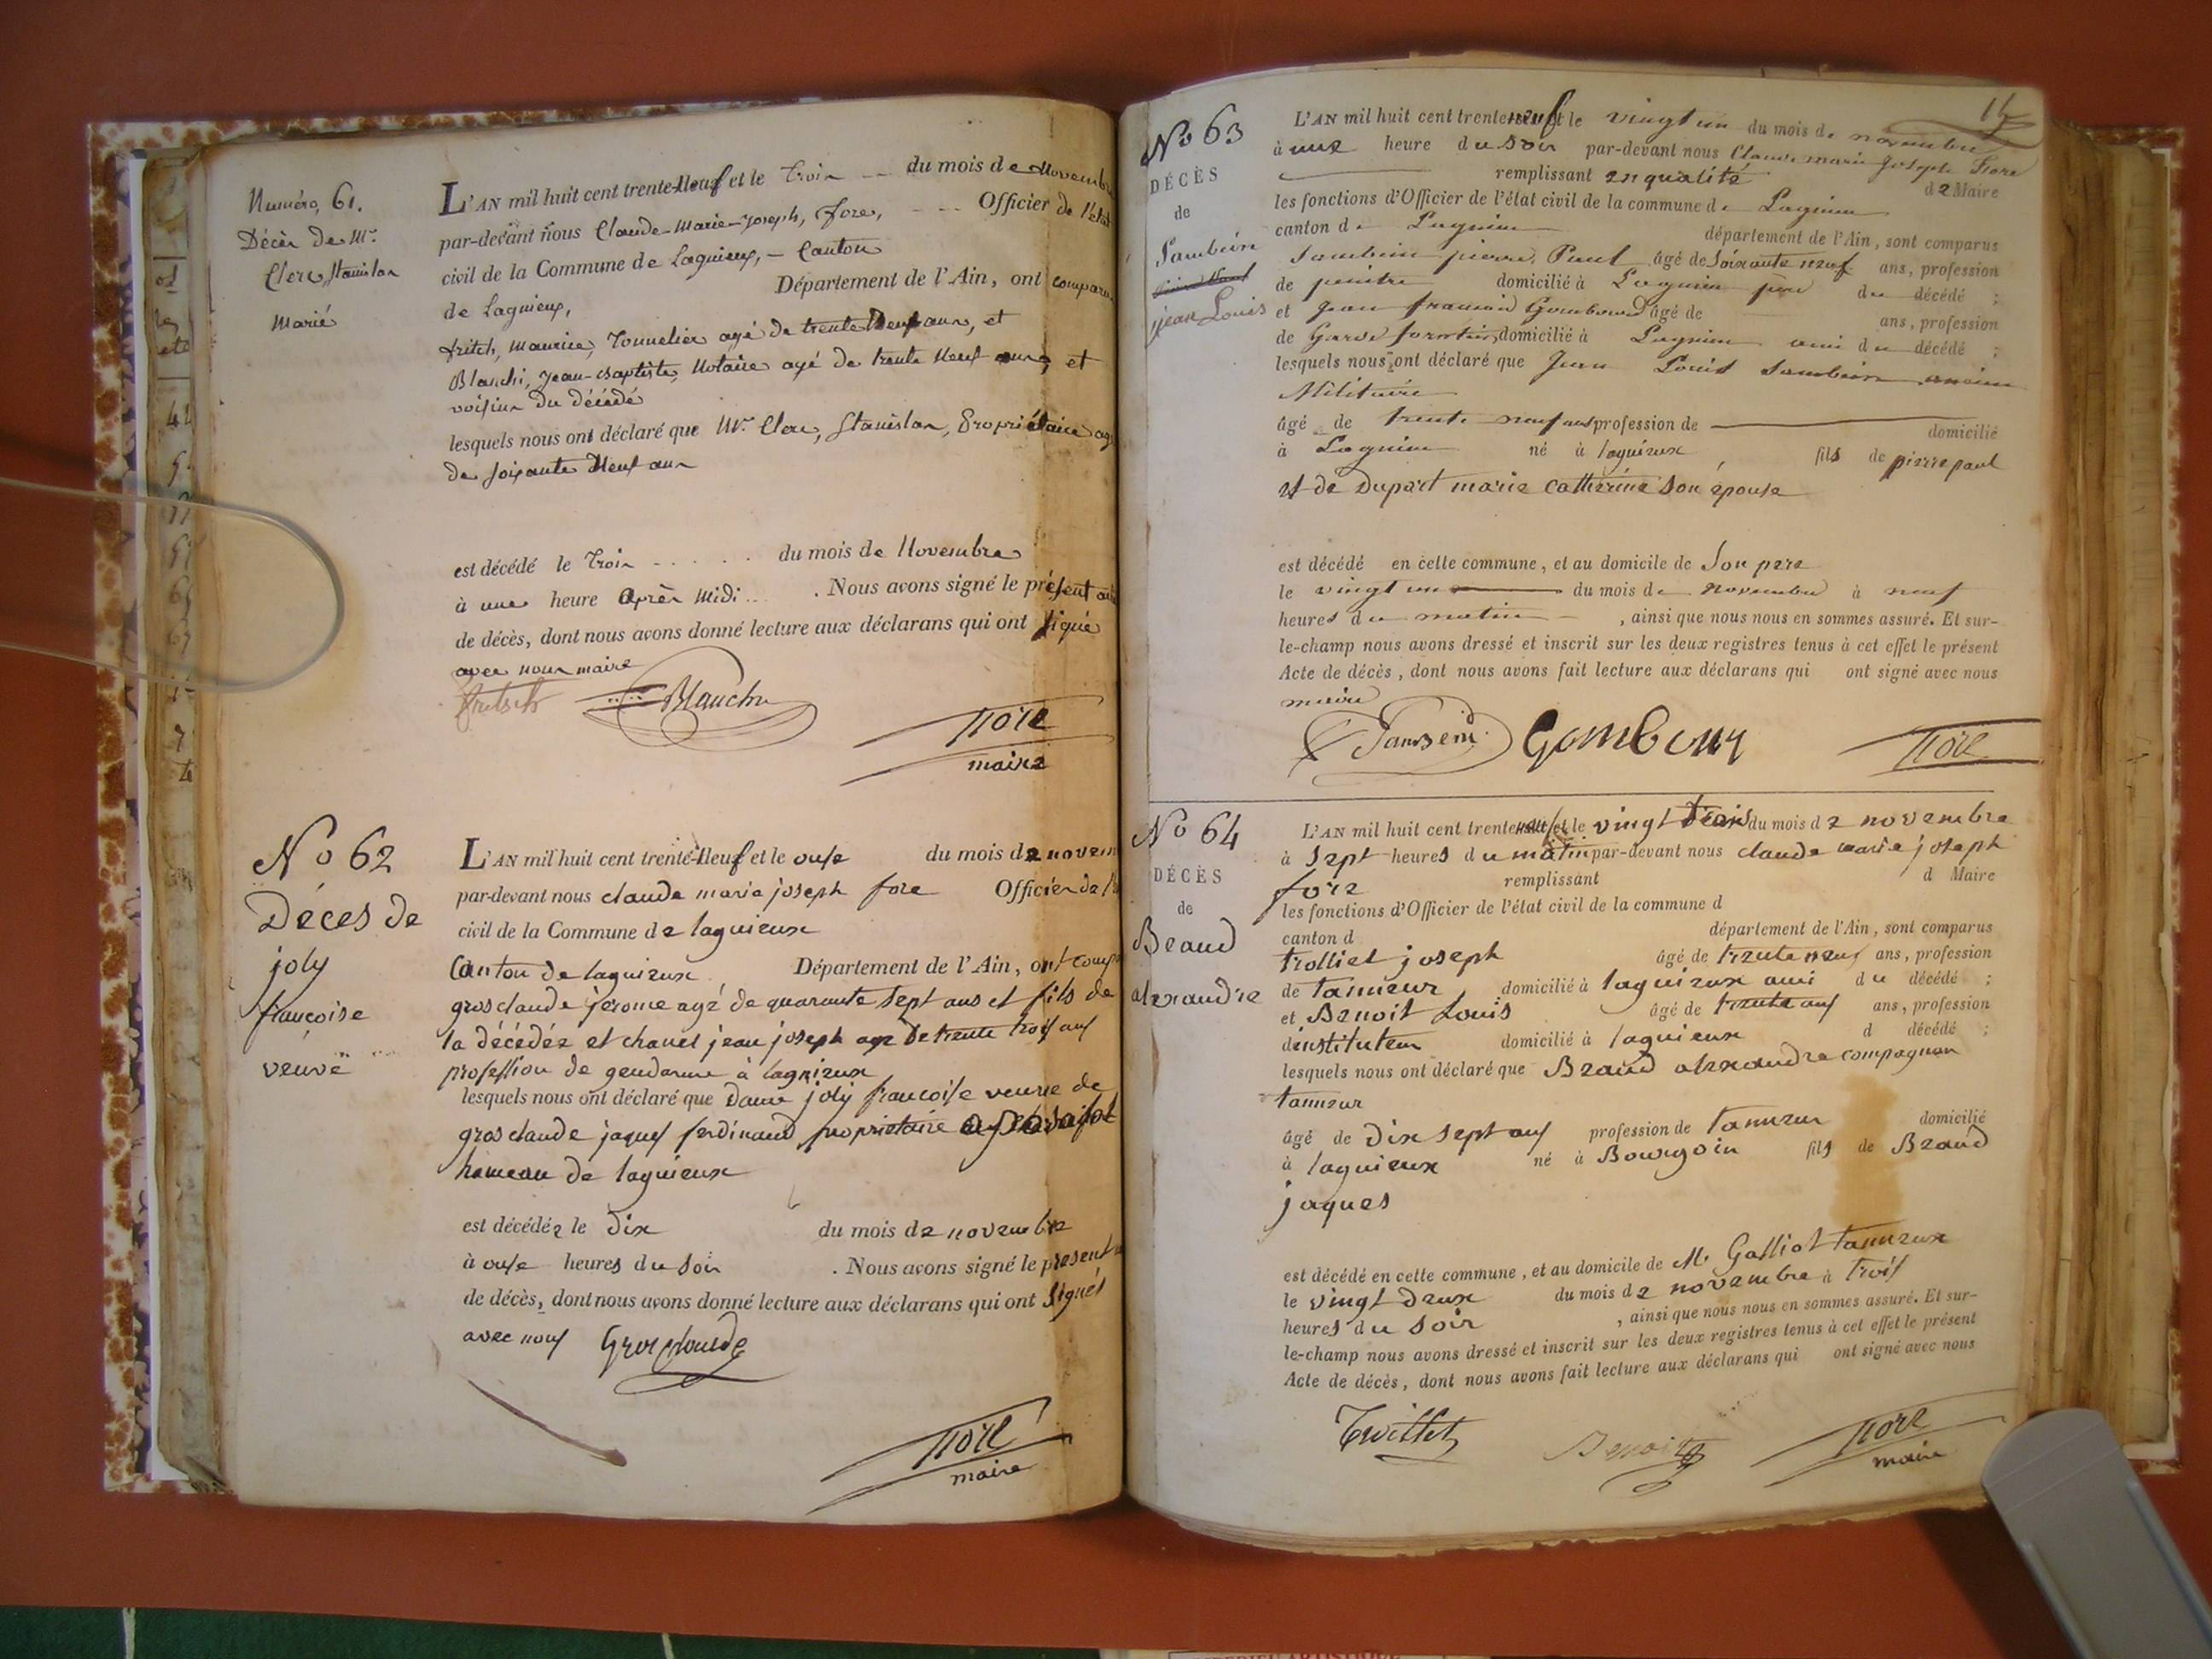 Numéro, 61.
Décès de Mr.
Clerc, Stanislas
Marié
L'AN mil huit cent trente-Neuf et le Trois du mois de Novembre
par-devant nous Claude-Marie-Joseph, fore, Officier de l'état
civil de la Commune de Lagnieux, - Canton
de Lagnieux, Département de l'Ain, ont comparu
fritch, Maurice, Tonnelier agé de trente Neuf ans, et
Blanchi, Jean-Baptiste, Notaire agé de trente Neuf ans, et
voisins du décédé
lesquels nous ont déclaré que Mr. Clerc, Stanislas, Propriétaire agé
de soixante Neuf ans
est décédé le Trois du mois de Novembre
à une heure Après Midi . Nous avons signé le présent acte
de décès, dont nous avons donné lecture aux déclarans qui ont signé
avec nous maire
fritsch Blanchi
fore
maire
No 62
Déces de
joly
françoise
veuve
L'AN mil huit cent trente-Neuf et le onse du mois de novem
par-devant nous claude marie joseph fore Officier de l'
civil de la Commune de lagnieux
Canton de lagnieux Département de l'Ain, ont comp
grosclaude jerome agé de quarante sept ans et fils de
la décédée et chanel jean joseph age de trente trois ans
profession de gendarme à lagnieux
lesquels nous ont déclaré que Dame joly francoise veuve de
grosclaude jaques ferdinand propriotaire
hameau de lagnieux
est décédée le Dix du mois de novembre
à onse heures du soir . Nous avons signé le présent
de décès, dont nous avons donné lecture aux déclarans qui ont signés
avec nous Grosclaude
fore
maire
No 63
DÉCÈS
de
Sambein
jean Louis
L'AN mil huit cent trente neuf et le vingt un du mois de novembre
à une heure du soir par-devant nous Claude marie Joseph Fore
remplissant en qualité de Maire
les fonctions d'Officier de l'état civil de la commune de Lagnieu
canton de Lagnieu département de l'Ain, sont comparus
Sambein pierre, Paul âgé de soixante neuf ans, profession
de peintre domicilié à Lagnieu père du décédé ;
et Jean francois Gombour âgé de ans, profession
de Garde forestier domicilié à Lagnieu ami du décédé ;
lesquels nous ont déclaré que Jean Louis Sambein ancien
Militaire
âgé de trente neuf ans profession de domicilié
à Lagnieu né à lagnieux fils de pierre paul
et de Dupart marie catherine son épouse
est décédé en cette commune, et au domicile de Son pere
le vingt un du mois de novembre à neuf
heures du matin , ainsi que nous nous en sommes assuré. Et sur-
le-champ nous avons dressé et inscrit sur les deux registres tenus à cet effet le présent
Acte de décès, dont nous avons fait lecture aux déclarans qui ont signé avec nous
maire
Gombour fore
No 64
DÉCÈS
de
Beaud
alexandre
L'AN mil huit cent trente neuf et le vingt trois du mois de novembre
à sept heures du matin par-devant nous claude marie joseph
fore remplissant d Maire
les fonctions d'Officier de l'état civil de la commune d
canton d département de l'Ain, sont comparus
trolliet joseph âgé de trente neuf ans, profession
de tanneur domicilié à lagnieux ami du décédé ;
et Benoit Louis âgé de trente ans ans, profession
d instituteur domicilié à lagnieux d décédé ;
lesquels nous ont déclaré que Beaud alexandre compagnon
tanneur
âgé de Dix sept ans profession de tanneur domicilié
à lagnieux né à Bourgoin fils de Beaud
jaques
est décédé en cette commune, et au domicile de M. Galliot tanneur
le vingt deux du mois de novembre à trois
heures du soir , ainsi que nous nous en sommes assuré. Et sur-
le-champ nous avons dressé et inscrit sur les deux registres tenus à cet effet le présent
Acte de décès, dont nous avons fait lecture aux déclarans qui ont signé avec nous
Benoit fore
maire